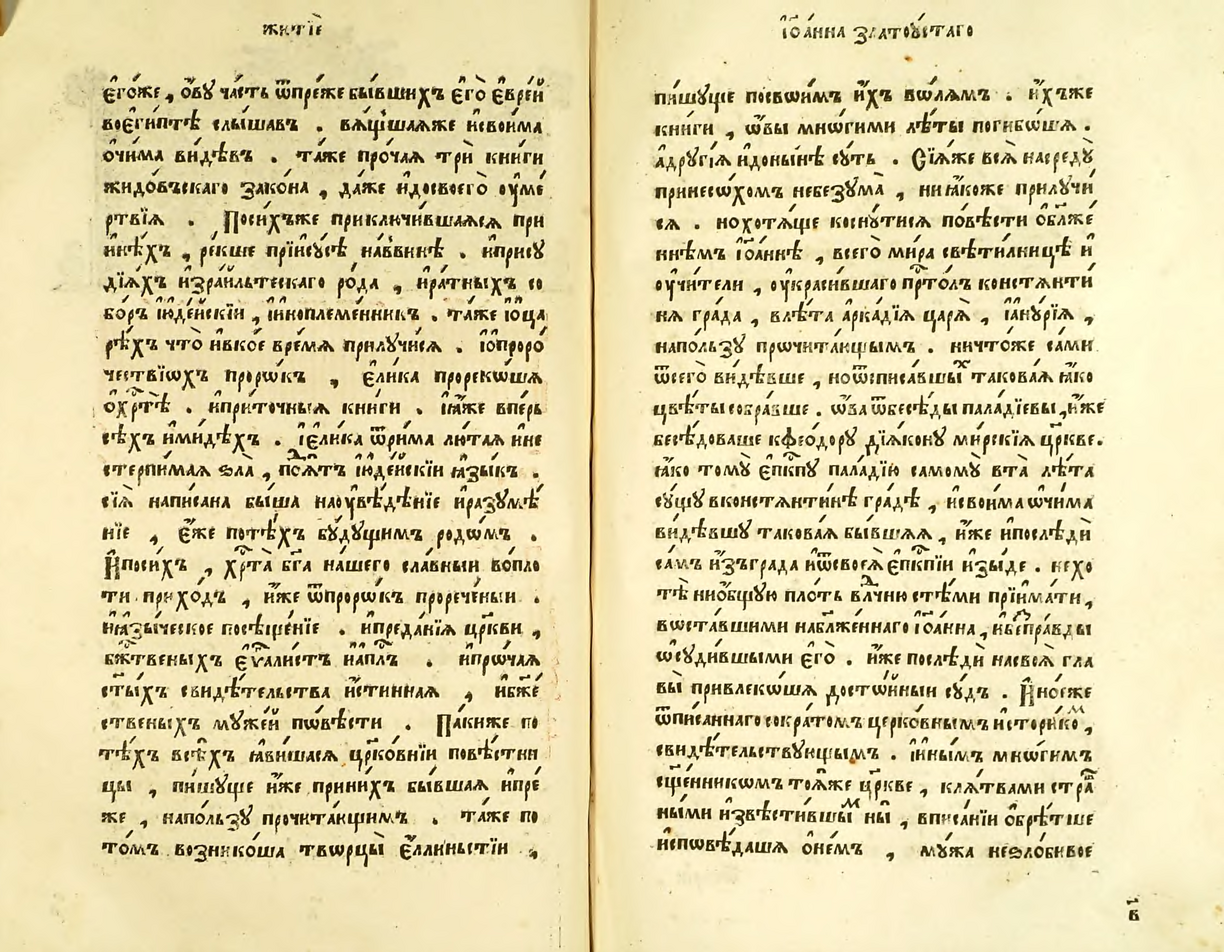 житїѐ
є҆го́же , ѻ҆́вꙋ ча́сть ѿпре́же бы́вшихъ є҆гѡ̀ є҆вре́й
воє҆ги́птѣ слы́шавъ . вѧ́щшаѧже и҆свои́ма
о́чима ви́дѣвъ . та́же про́чаѧ трѝ книги
жидо́въскаго зако́на , да́же и҆досвоего̀ ᲂу҆ме́
ртвїѧ . Посихъже приклю́чившаѧсѧ при
и҆нѣ́хъ , ре́кше прїисꙋ́сѣ на́ввинѣ . и҆присꙋ
дїѧ́хъ и҆зра́ильтескаго ро́да , и҆ра́тныхъ со
бо́ръ і҆ю҆де́йскїи , і҆и҆ноплеме́нникъ . та́же і҆ѡ҆ца
рѣ́хъ что̀ и҆вко́е вре́мѧ прилꙋчи́сѧ . і҆ѡ҆проро́
чествїѡхъ про́рѡкъ , є҆ли́ка прореко́ша
ѡ҆хр҇тѣ̀ . и҆при́точныѧ книги . ꙗ҆́же впе́рь
сѣ́хъ и҆ми́дѣхъ . і҆є҆ли́ка ѿри́ма лю́таѧ и҆не
стерпи́маѧ ѕла̀ , по́сѧтъ і҆ю҆де́йскїи ꙗ҆зы́къ .
сїѧ̀ напи́сана бы́ша наᲂу҆вѣ́дѣнїе и҆разꙋмѣ́
нїе , є҆́же потѣ́хъ бꙋ́дꙋщимъ ро́дѡмъ .
И҆поси́хъ , хр҇та̀ бг҃а на́шего сла́вныи вопло
ти́ прихо́дъ , и҆́же ѿпро́рѡкъ проре́ченыи .
и҆ꙗ҆зы́ческое посѣще́нїе . и҆преда́нїѧ цр҃кви ,
бж҃твеныхъ є҆ѵ҃алистъ и҆ап҃лъ . и҆прѡ́чаѧ
ст҃ы́хъ свидѣ́тельства и҆́стиннаѧ , и҆бж҃е
ственыхъ мꙋже́й по́вѣсти . Па́киже по
тѣ́хъ всѣ́хъ ꙗ҆ви́шасѧ цр҃ко́внїи повѣ́стни
цы , пи́шꙋще и҆́же прини́хъ бы́вшаѧ и҆пре́
же , напо́льзꙋ прочита́ющимъ . та́же по
то́мъ возни́коша тво́рцы є҆́ллиньстїи ,
і҆ѡа́нна златоꙋ́стаго
пи́шꙋще посвои́мъ и҆́хъ во́лѧмъ . и҆́хъже
книги , ѻ҆́вы мно́гими лѣ́ты поги́боша .
а҆дрꙋгі́ѧ и҆доны́нѣ сꙋ́ть . Сїѧ́же всѧ̀ насредꙋ̀
принесо́хомъ небезꙋма̀ , ниꙗ҆́коже прилꙋчи́
сѧ . нохотѧ́ще коснꙋ́тисѧ по́вѣсти ѡ҆бл҃же́
ннѣмъ і҆ѡа́ннѣ , всего̀ ми́ра свѣти́лницѣ и҆
ᲂу҆чи́тели , ᲂу҆кра́сившаго пр҇то́лъ констѧнти́
нѧ гра́да , влѣ́та а҆рка́дїѧ царѧ̀ , і҆анꙋ́рїѧ ,
напо́льзꙋ прѡчита́ющымъ . ничто́же са́ми
ѿсего̀ ви́дѣвше , ноѿспи́савшыхъ такова́ѧ ꙗ҆́ко
цвѣ́ты собра́вше . ѻ҆́ва ѿбесѣ́ды пала́дїевы , и҆́же
бесѣ́доваше кѳео́дорꙋ дїѧ́конꙋ ми́рскїѧ цр҃кве .
ꙗ҆́ко томꙋ̀ є҆пⷭ҇кпꙋ пала́дїю самомꙋ̀ вта̀ лѣ́та
сꙋ́щꙋ вконстѧнти́нѣ гра́дѣ , и҆свои́ма ѻ҆чи́ма
ви́дѣвшꙋ такова́ѧ бы́вшаѧ , и҆́же и҆послѣдѝ
са́мъ и҆́зъграда и҆ѿсвоеѧ̀ є҆пⷭ҇кпїи и҆зы́де . нехо
тѣ̀ ниѻ҆́бщꙋю пло́ть влⷣчню стѣ́ми прїима́ти ,
воста́вшими набл҃же́ннаго і҆ѡа́нна , и҆бе́справды
ѡ҆сꙋди́вшыми є҆го̀ . и҆́же послѣдѝ насвоѧ̀ гла
вы̀ привлеко́ша досто́йныи сꙋ́дъ . И҆ное́же
ѿпи́саннаго сокра́томъ церко́внымъ и҆сто́рикомъ ,
свидѣ́тельствꙋющымъ . і҆и҆ны́мъ мно́гимъ
сщ҃е́нникомъ тоѧ́же цр҃кве , клѧ́твами стра́
ными и҆звѣсти́вшымъ ны̀ , вписа́нїи ѡ҆брѣ́тше
и҆спо́вѣдаша ѻ҆не́мъ , мꙋ́жа неѕло́бивое
в҃